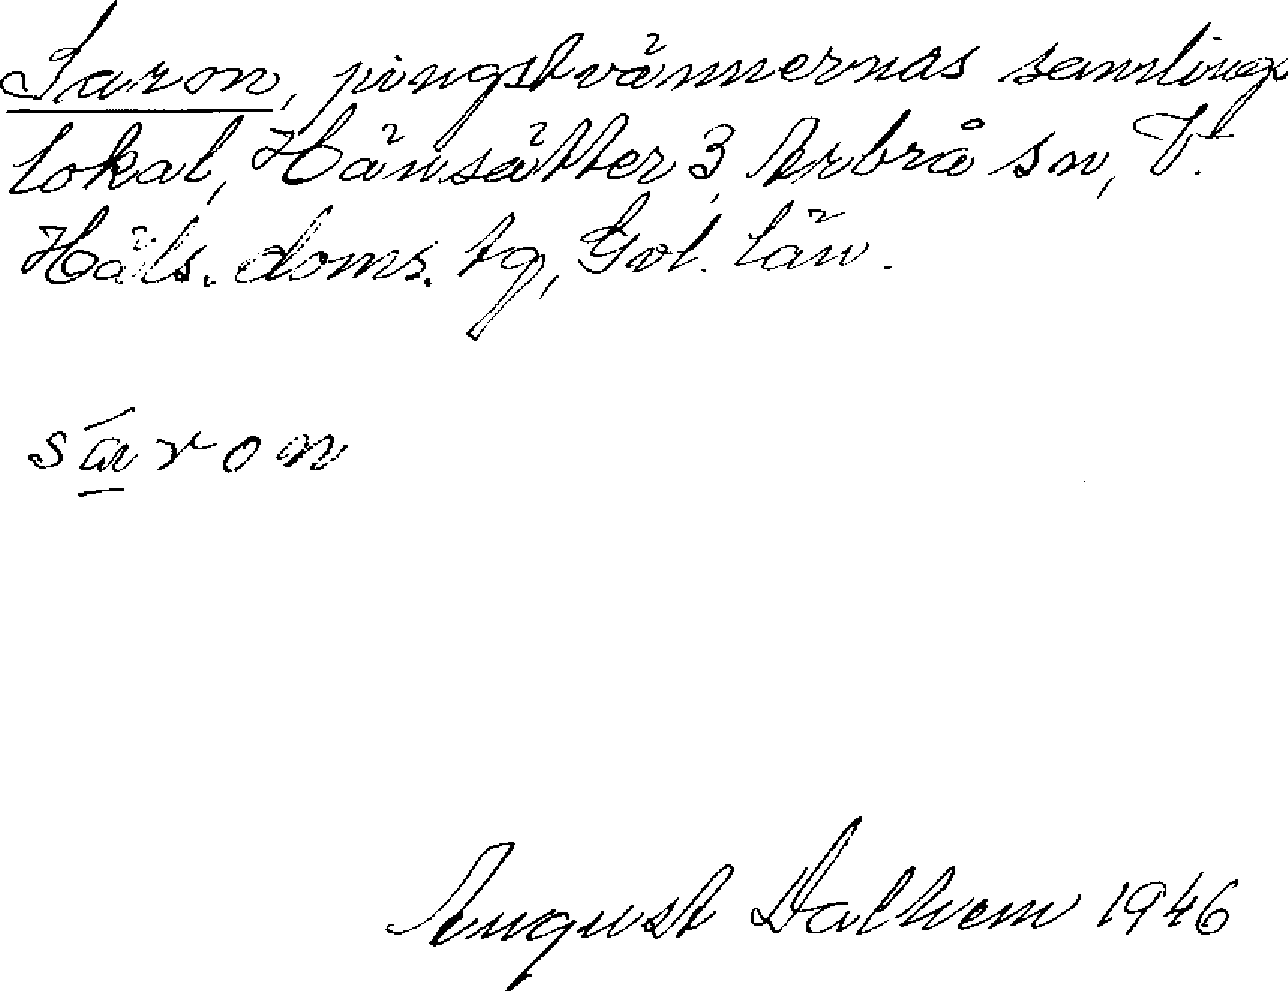 Saron, pingstvännernas samlings
lokal, Hänsätter 3, Arbrå sn, V.
Häls. doms. tg, Gvl. län.
sáron
August Dalhem 1946